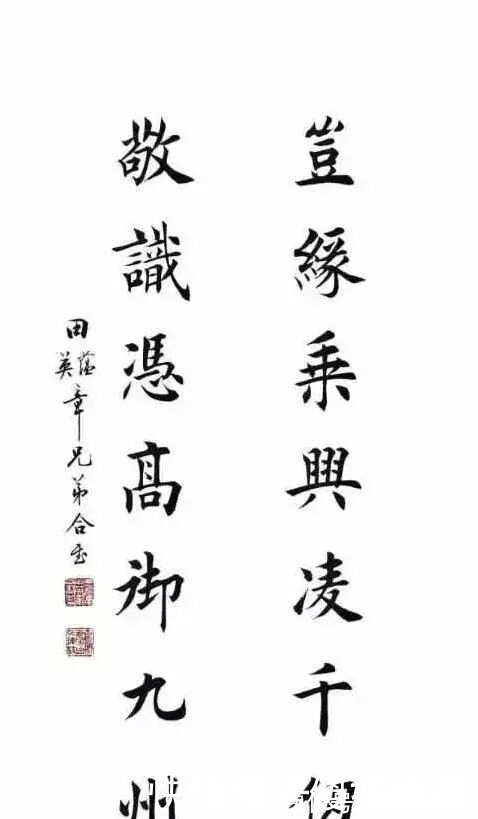 豈緣乘興凌千仞
敬識憑髙御九州
田蘊英章兄弟合書